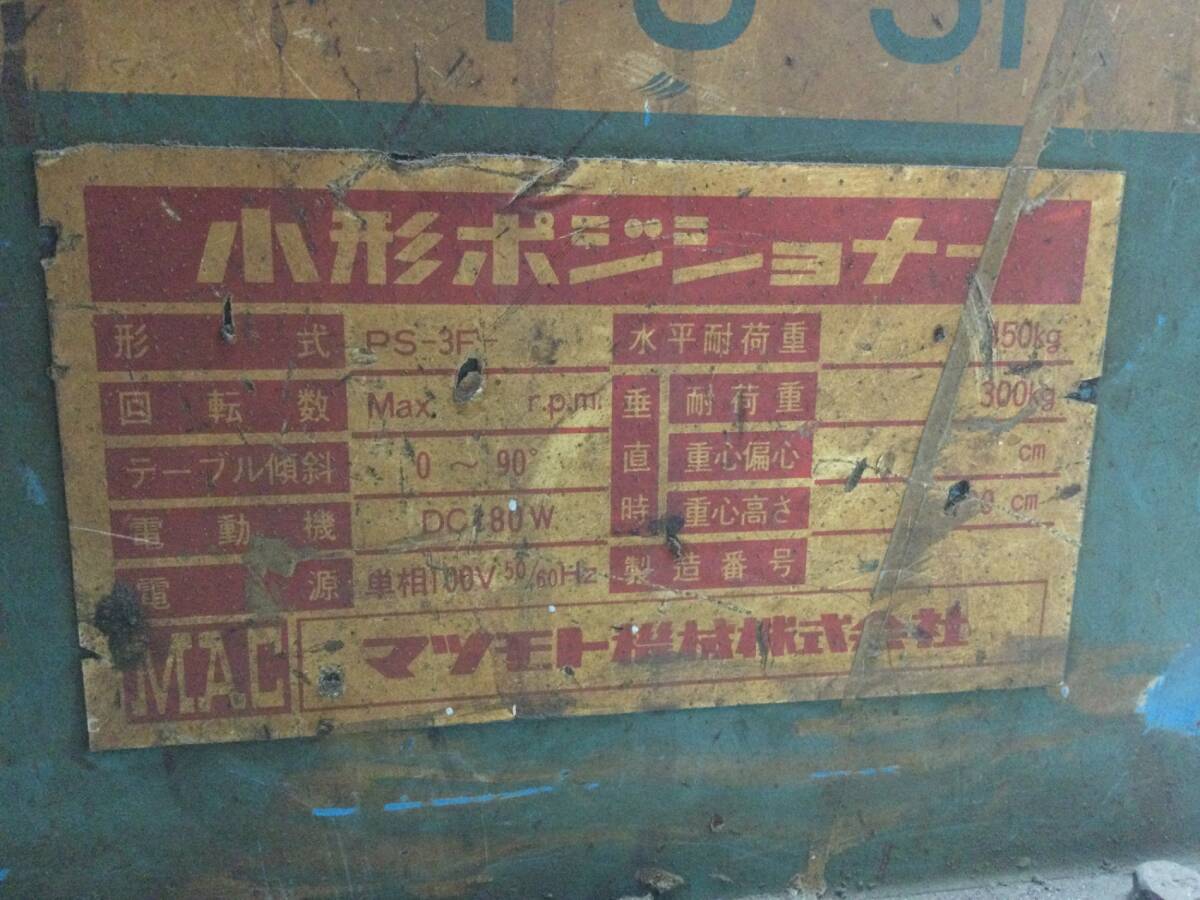 小形ポジショナー
形式 PS-3F- 水平耐荷重 450kg
回転数 Max. r.p.m. 垂直時 耐荷重 300kg
テーブル傾斜 0 ~ 90° 重心偏心 cm
電動機 DC 80W 重心高さ cm
電源 単相100V 50/60Hz 製造番号
MAC マツモト機械株式会社